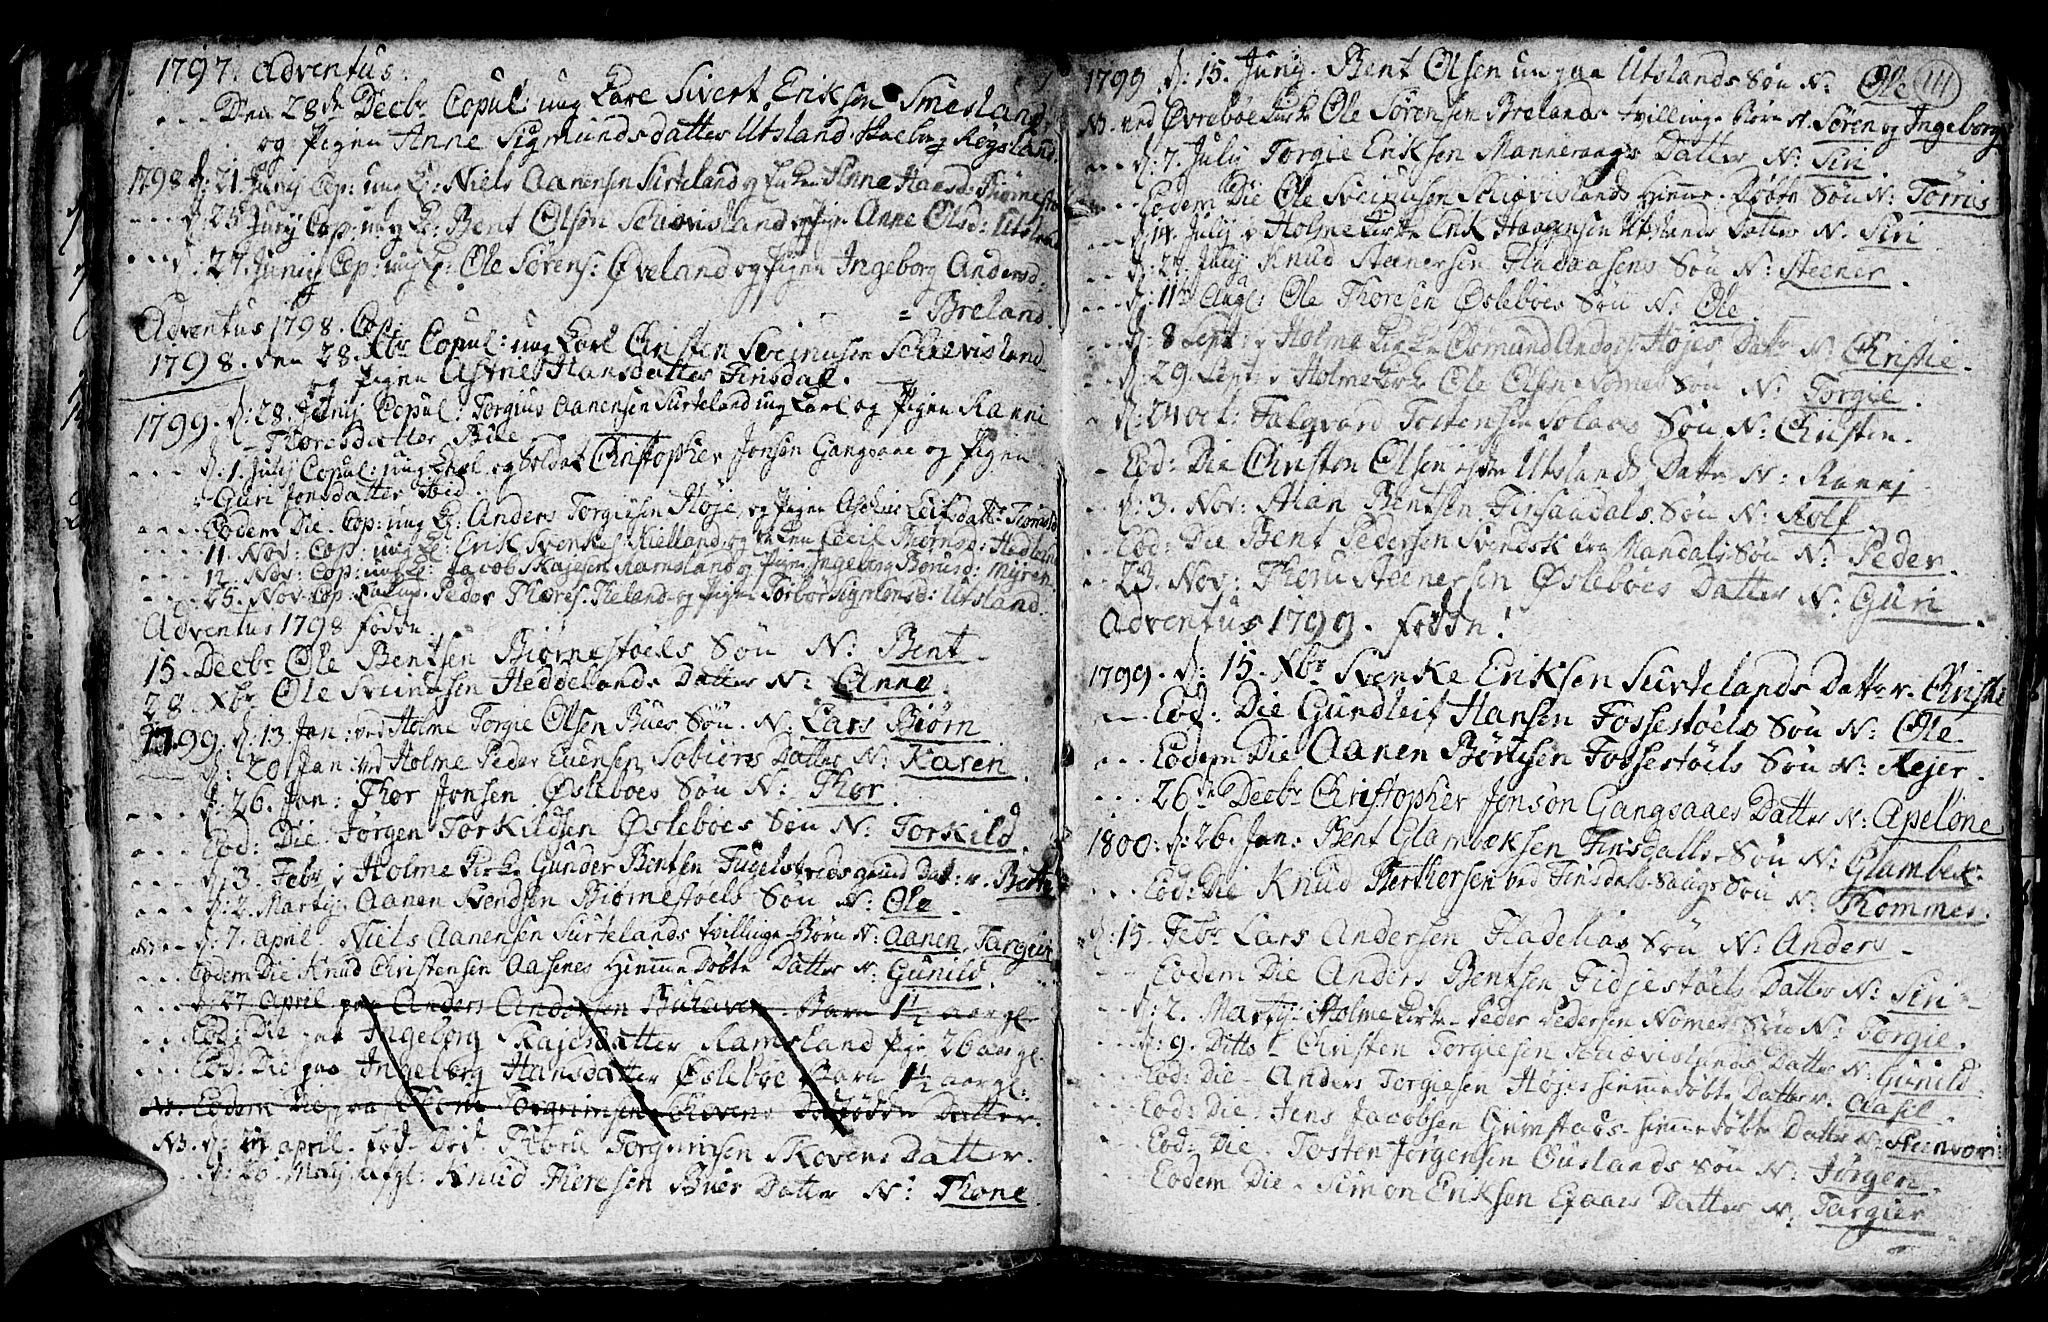 1797. Adventus.
- - - Den 28de Decbr Copul: ung Karl Sivert Eriksen Smesland
og Pigen Anne Sigmundsdatter Utsland
1798 d: 21 Junij Cop: ung K: Niels Aanensen Surteland og Enken Anne Hansd:
- - - d: 25 Junij Cop. ung K: Bent Olsøn Schævisland og Pige Anne Olsd: Utsland
- - - d: 27 Junij Cop: ung K: Ole Sørens: Øveland og Pigen Ingeborg Andersd:
= Breland.
Adventus 1798. Cop:
1798. den 28. Xbr Copul: ung Karl Christen Sveinusen Schævisland
og Pigen Astne Hansdatter Finsdal.
1799. d: 28. Junij Copul: Torgius Aanensen Surteland ung Karl og Pigen Ranni
- Thoresdatter Bue
- - - d. 1. Julij Copul: ung Karl og Soldat Christopher Jonsen Gangsaae og Pigen
Guri Jonsdatter ibid.
- - - Eodem Die. Cop: ung K: Anders Torgiusen Høje, og Pigen
- - - 11. Nov: Cop: ung K: Erik Svenkes: Kielland og Enken Cecil
- - - 12. Nov: Cop: ung K: Jacob Skajesen Ramsland og Pigen Ingeborg
- - - 25. Nov. Cop: Peder Thores: og Pigen Torbor Utsland.
Adventus 1798 fødde.
15. Decbr Ole Bentsen Biørnestøels Søn N: Bent
28. Xbr Ole Sveinusen Heddelands Datter N: Anne.
1799. d. 13. Jan: ved Holme Torgie Olsen Bues Søn. N: Lars Biørn
d: 20 Jan: ved Holme Peder Evensen Datter N: Karen
- - - d: 26. Jan: Thor Jonsen Øsleboes Søn N: Thor.
- - - Eod: Die Jørgen Torkildsen Øsleboes Søn N: Torkild.
- - - d: 3. Febr i Holme Kirke Gunder Bentsen Dat: N.
- - - d: 2. Martij: Aanen Svendsen Biørnestøels Søn N: Ole.
NB. - - d: 7. April. Niels Aanensen Surtelands tvillinge Børn N: Aanen, Targier
- - - Eodem Die Knud Christensen Aasenes Hiemme Døbte Datter N: Gunild.
- - - d: 27. April paa Anders Andersen Barn 1½ aar gl
- - - Eod: Die paa Ingeborg Skajesdatter Ramsland Pige 26 aar gl.
- - - Eod: Die paa Ingeborg Hansdatter Øsleboe Barn 1½ aar gl:
NB. Eodem Die paa Torgrimsen Skovens Datter.
NB. d: April. fød Død Thoru Torgrimsen Skovens Datter.
d: 26 Maij Knud Theresen Buer Datter N: Thone
1799. d: 15. Junij. Bent Olsen ung paa Utslands Søn N: Ole 111
NB. ved Øvreboe Kirke Ole Sørensen Brelands tvillinge Børn N. Søren og Ingeborg
- - - d: 7. Julij Torgie Eriksen Mannerangs Datter N: Siri
- - - Eodem Die Ole Sveinusen Schævislands Hiemme Døbte Søn N: Tørris
- - - d: 14. Julij i Holme Kirke Erik Haagensen Utslands Datter N. Siri
- - - d: 24. Julij Knud Steenersen Fladaasens Søn N: Steener.
- - - d: 11te Aug: Ole Thoresen Øsleboes Søn N: Ole.
- - - d: 8 Sept: i Holme Kirke Osmund Anders: Højes Datter N: Christie.
- - - d: 29. Sept: i Holme Kirke Ole Olsen Nomes Søn N: Torgie.
- - - d: 24 Oct: Falqvard Tostensen Solaas Søn N: Christen.
- Eod: Die Christen Olsen Utslands Datter N: Ranni
- - d: 3. Nov: Alian Bentsen Finsaadals Søn N: Rolf.
- - - Eod: Die Bent Pedersen Svendsk fra Mandals Søn N: Peder.
- - 23. Nov: Thoru Steenersen Øsleboes Datter N: Guri
Adventus 1799. fødde!
1799. d: 15. Xbr Svenke Eriksen Surtelands Datter N. Christie
- - Eod: Die Gundleif Hansen Fossestøels Søn N: Ole.
- - - Eodem Die Aanen Børusen Fossestøels Søn N: Rejer.
- - - 26de Decbr Christopher Jonsøn Gangsaaes Datter N: Apelone
1800: d: 26. Jan: Bent Glambeksen Finsdalls Søn N: Glambek.
- - Eod: Die Knud Berthersen ved Finsdals Søn N: Thommes.
d: 15. Febr Lars Andersen Fladelias Søn N: Anders
- - Eodem Die Anders Bentsen Fidjestøels Datter N: Siri
- - d: 2. Martij: Holme Kirke Peder Pedersen Nomes Søn N: Torgie.
- - d: 9. Ditto - Christen Torgiesen Schævislands Datter N: Gunild.
- - Eod: Die - Anders Torgiesen Højes hiemmedøbte Datter N. Aasil.
- - Eod: Die. Jens Jacobsen Grimstads hiemmedøbte Datter N: Steenvor
- Eod: Die. Tosten Jørgensen Øuslands Søn N. Jørgen.
- Eodem Die - Simon Eriksen Efaaes Datter N. Targier